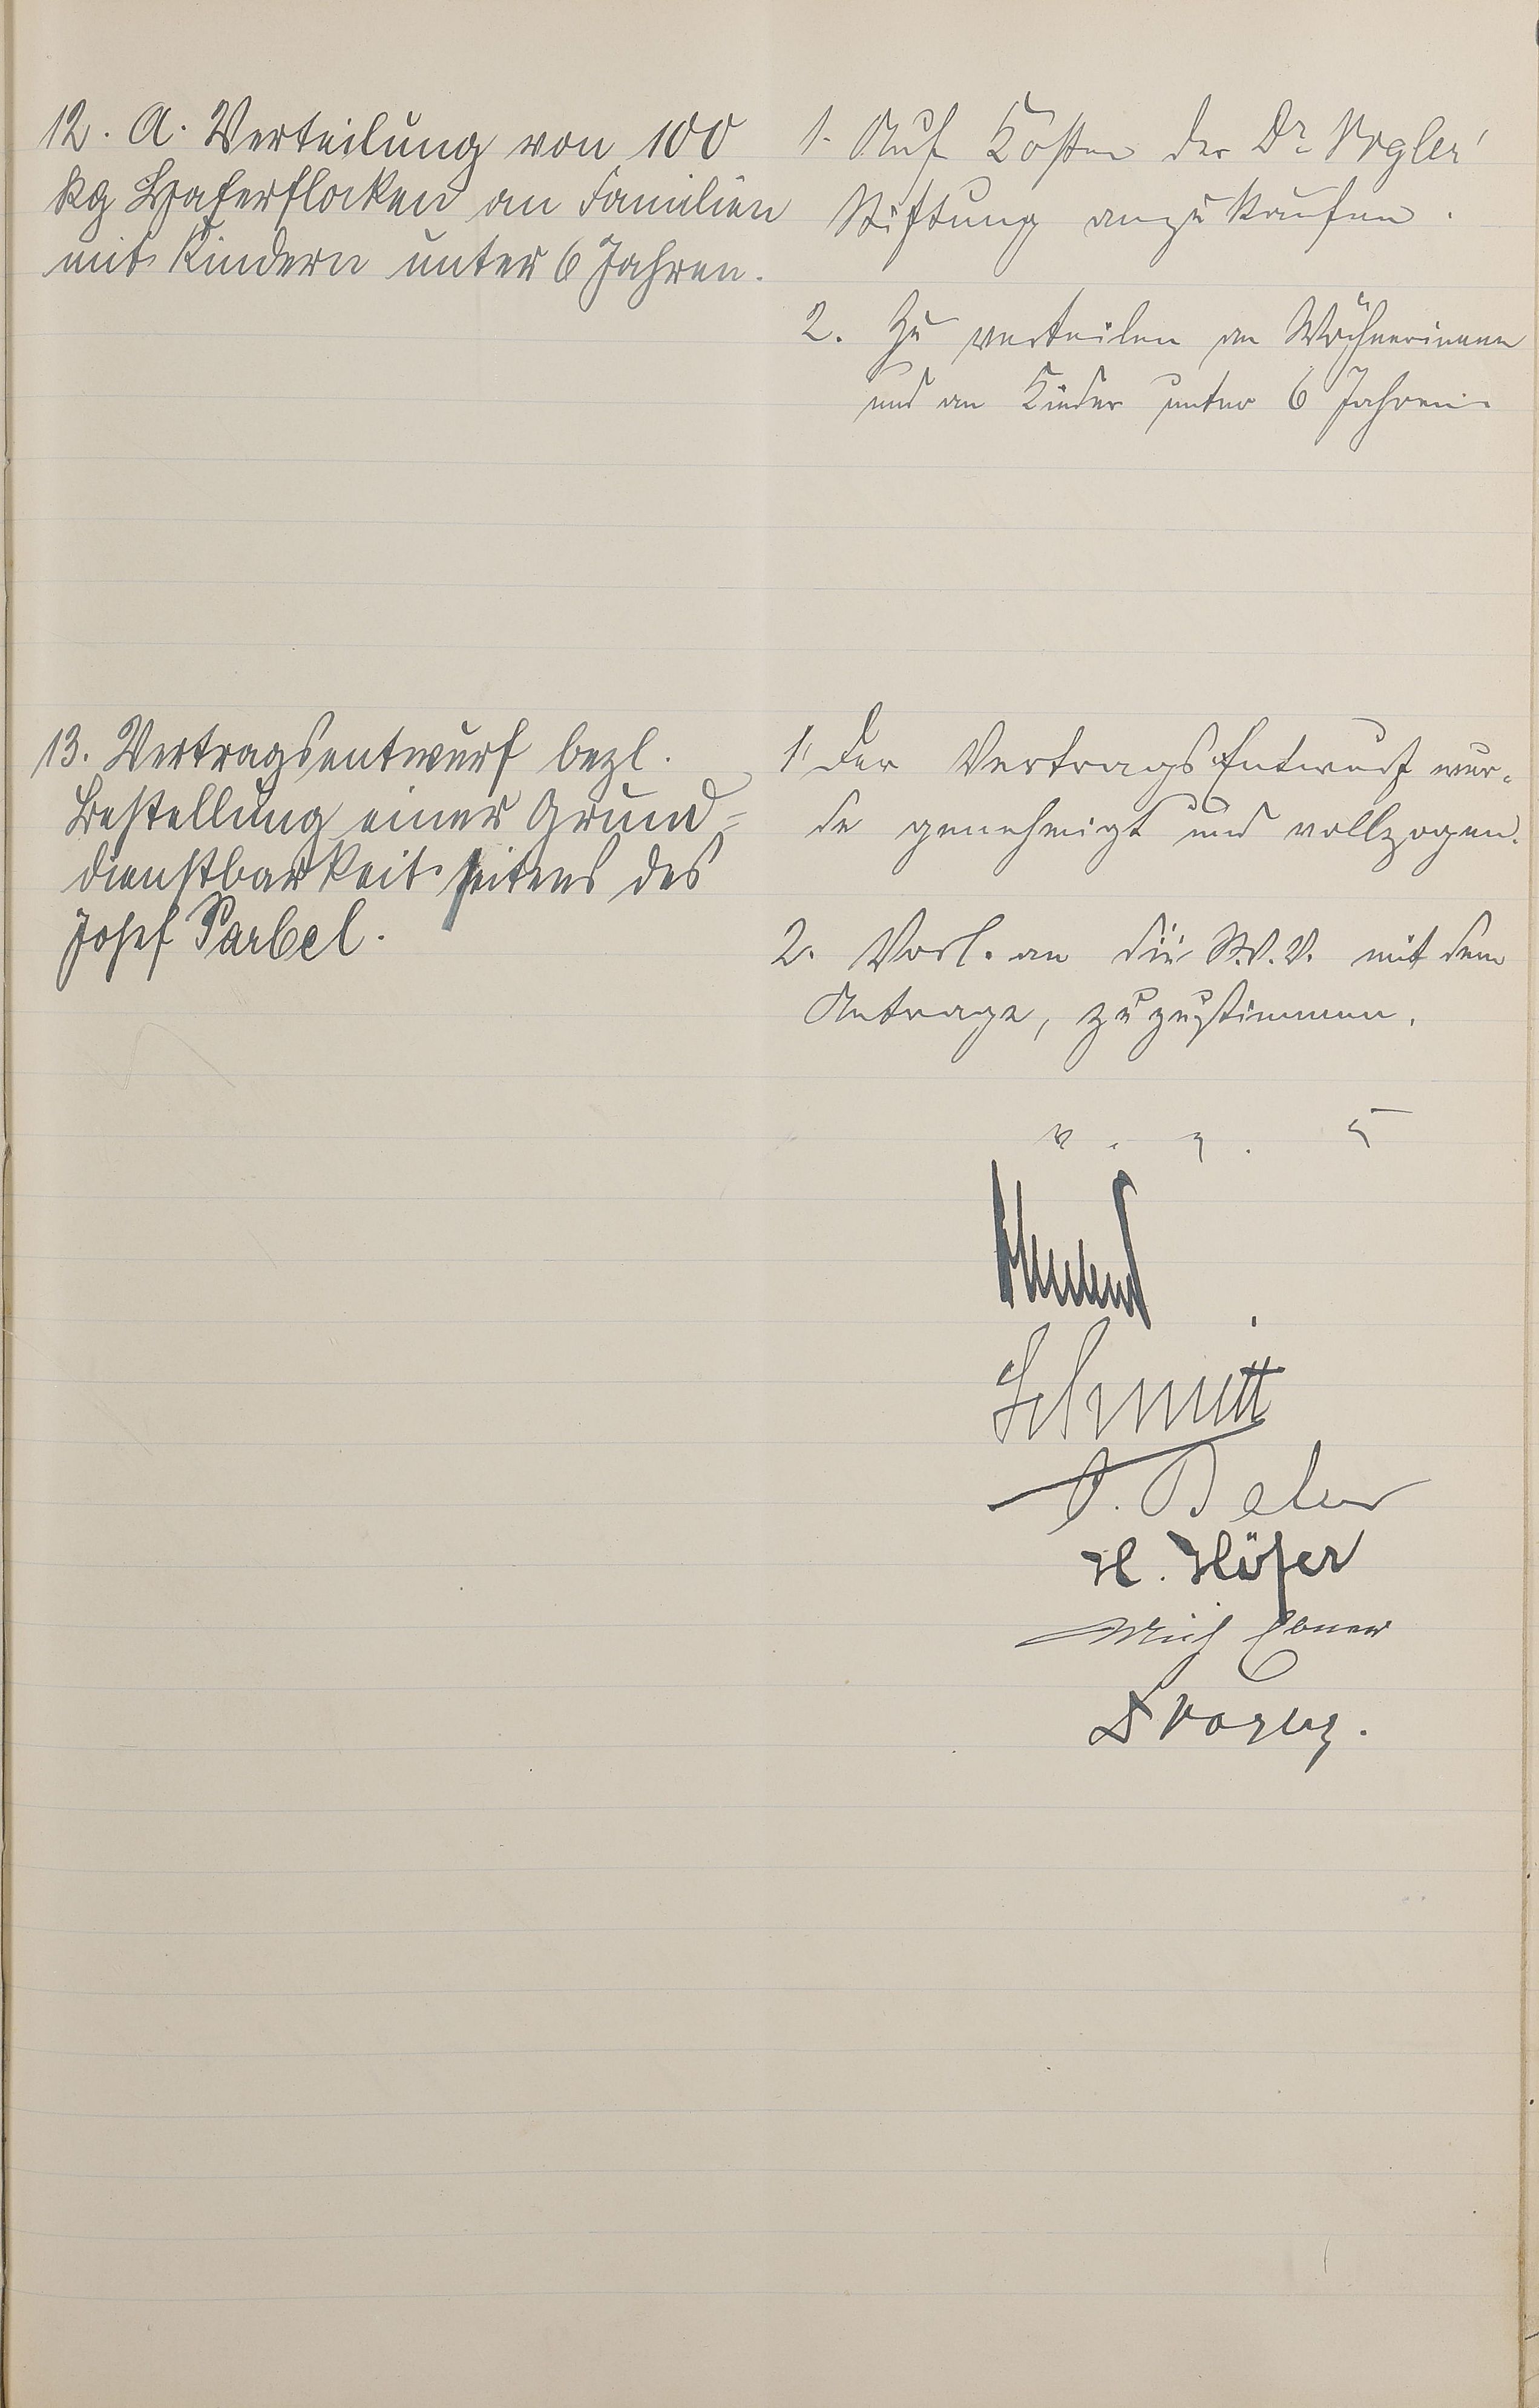 12. A. Verteilung von 100
kg Haferflocken an Familien
mit Kindern unter 6 Jahren.
1. Auf Kosten der Dr Vogler'
Stiftung anzukaufen.
2. Zu verteilen an Wöchnerinnen
und an Kinder unter 6 Jahren.
13. Vertragsentwurf bezl.
Bestellung einer Grund=
dienstbarkeit seitens des
Josef Parbel.
1. Der VertragsEntwurf wur-
de genehmigt und vollzogen.
2. Vorl. an die St.V.V. mit dem
Antrage, zuzustimmen.
v. g.
Schmitt
H. Höfer
Mich Ebner